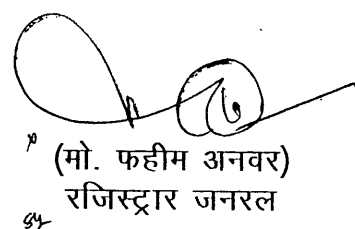 (मो. फहीम अनवर)
रजिस्ट्रार जनरल